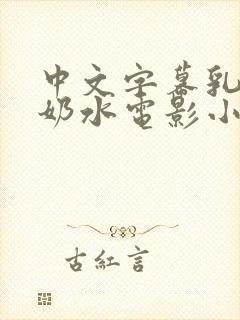 中文字幕乳
奶水电影小
古紅言